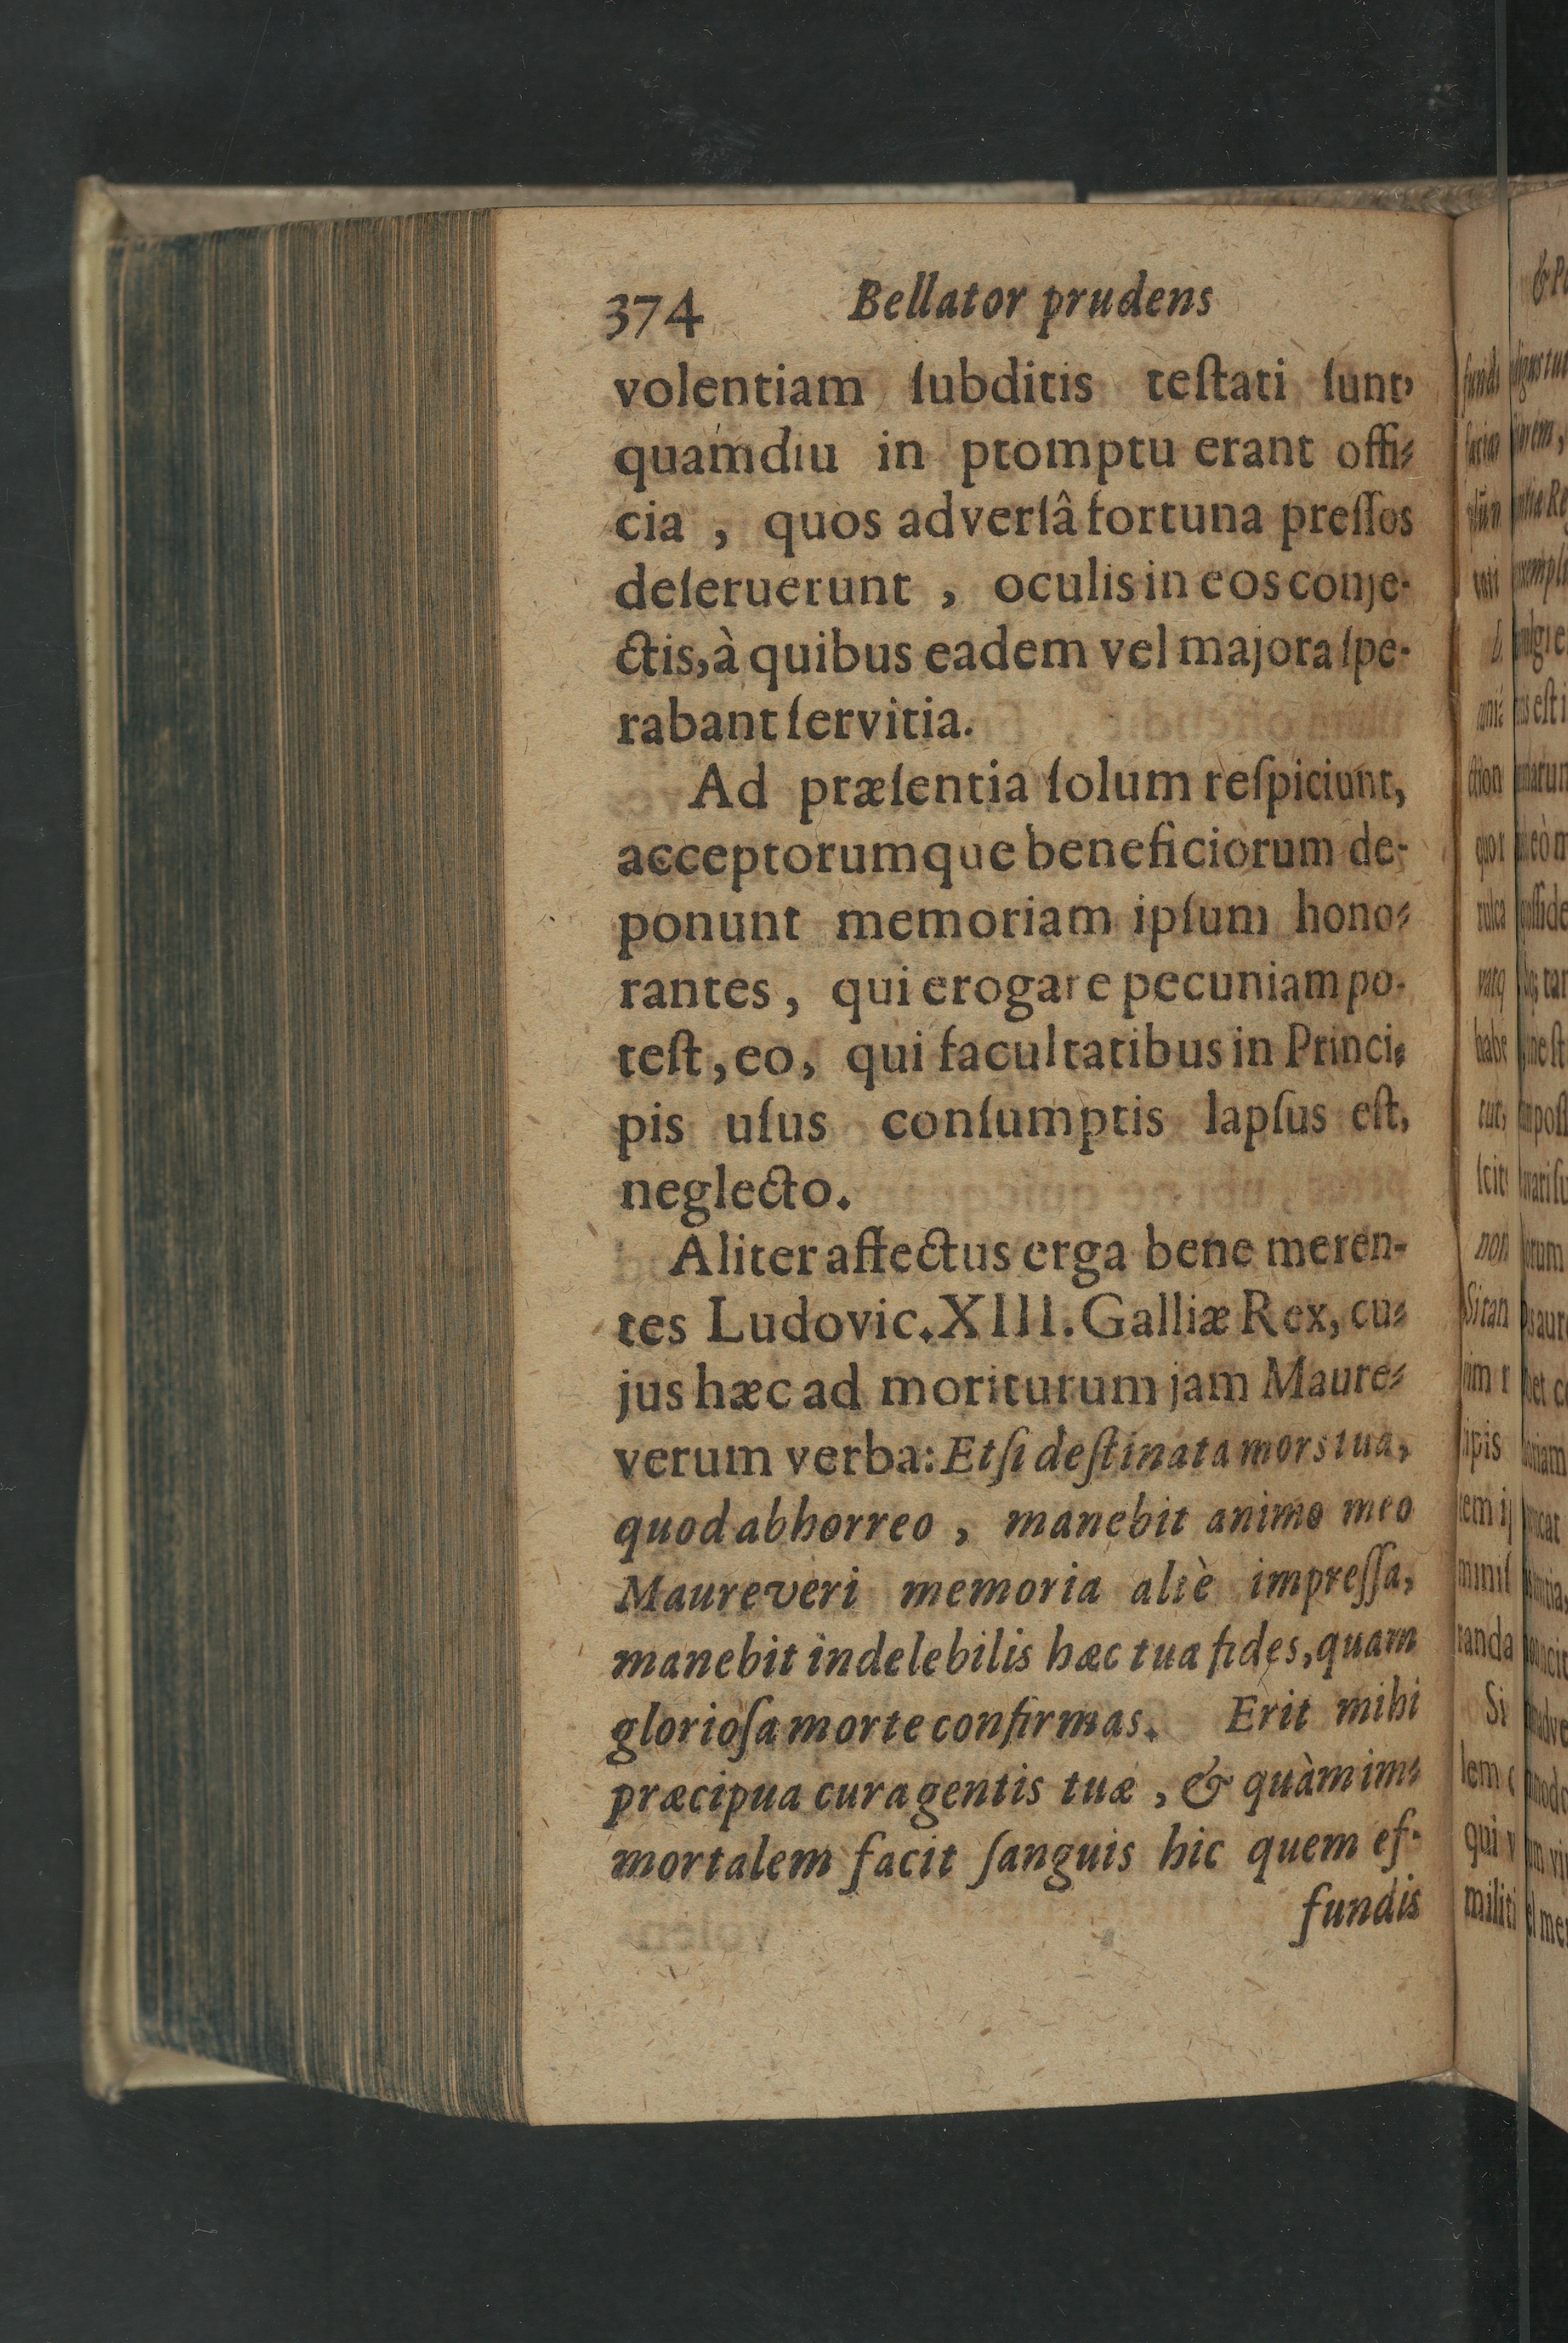 374 Bellator prudens
volentiam ſubditis teſtati ſunt,
quamdiu in promptu erant offi-
cia , quos adverſâ fortuna preſſos
deſeruerunt , oculis in eos conje-
ctis, à quibus eadem vel majora ſpe-
rabant ſervitia.
Ad præſentia ſolum reſpiciunt,
acceptorumque beneficiorum de-
ponunt memoriam ipſum hono-
rantes, qui erogare pecuniam po-
teſt, eo, qui facultatibus in Princi-
pis uſus conſumptis lapſus eſt,
neglecto.
Aliter affectus erga bene meren-
tes Ludovic. XIII. Galliæ Rex, cu-
jus hæc ad moriturum jam Maure-
verum verba: Etſi deſtinata mors tua,
quod abhorreo , manebit animo meo
Maureveri memoria altè impreſſa,
manebit indelebilis hæc tua fides, quam
glorioſa morte confirmas. Erit mihi
præcipua cura gentis tuæ , & quàm im-
mortalem facit ſanguis hic quem ef-
fundis